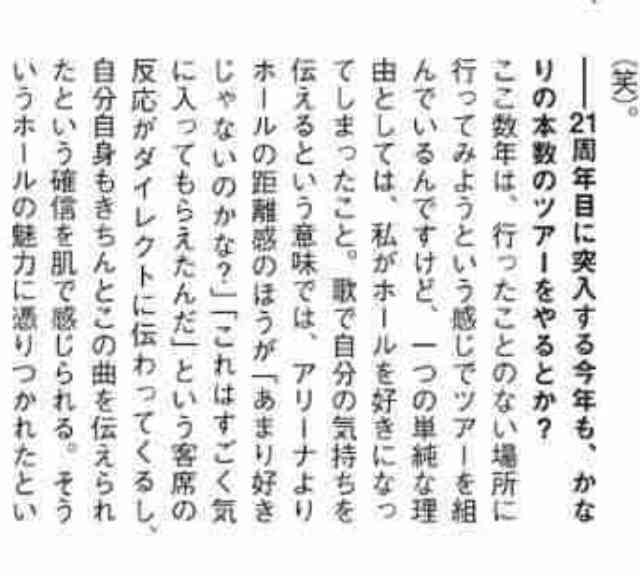 (笑)。
――21周年目に突入する今年も、かな
りの本数のツアーをやるとか？
ここ数年は、行ったことのない場所に
行ってみようという感じでツアーを組
んでいるんですけど、一つの単純な理
由としては、私がホールを好きになっ
てしまったこと。歌で自分の気持ちを
伝えるという意味では、アリーナより
ホールの距離感のほうが「あまり好き
じゃないのかな？」「これはすごく気
に入ってもらえたんだ」という客席の
反応がダイレクトに伝わってくるし、
自分自身もきちんとこの曲を伝えられ
たという確信を肌で感じられる。そう
いうホールの魅力に憑りつかれたとい